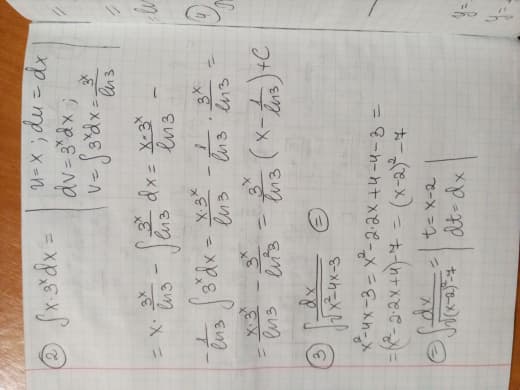 ② ∫x·3ˣdx = | u=x ; du=dx
dv=3ˣdx ;
v=∫3ˣdx=3ˣ/ln3 |
= x·3ˣ/ln3 − ∫3ˣ/ln3 dx = x·3ˣ/ln3 −
−1/ln3 ∫3ˣdx = x·3ˣ/ln3 − 1/ln3 · 3ˣ/ln3 =
= x·3ˣ/ln3 − 3ˣ/ln²3 = 3ˣ/ln3 (x − 1/ln3)+C
③ ∫dx/√(x²−4x−3) ⊜
x²−4x−3 = x²−2·2x+4−4−3 =
=(x²−2·2x+4)−7 = (x−2)²−7
⊜ ∫dx/√((x−2)²−7) = | t=x−2
dt=dx |
④
y=
y=